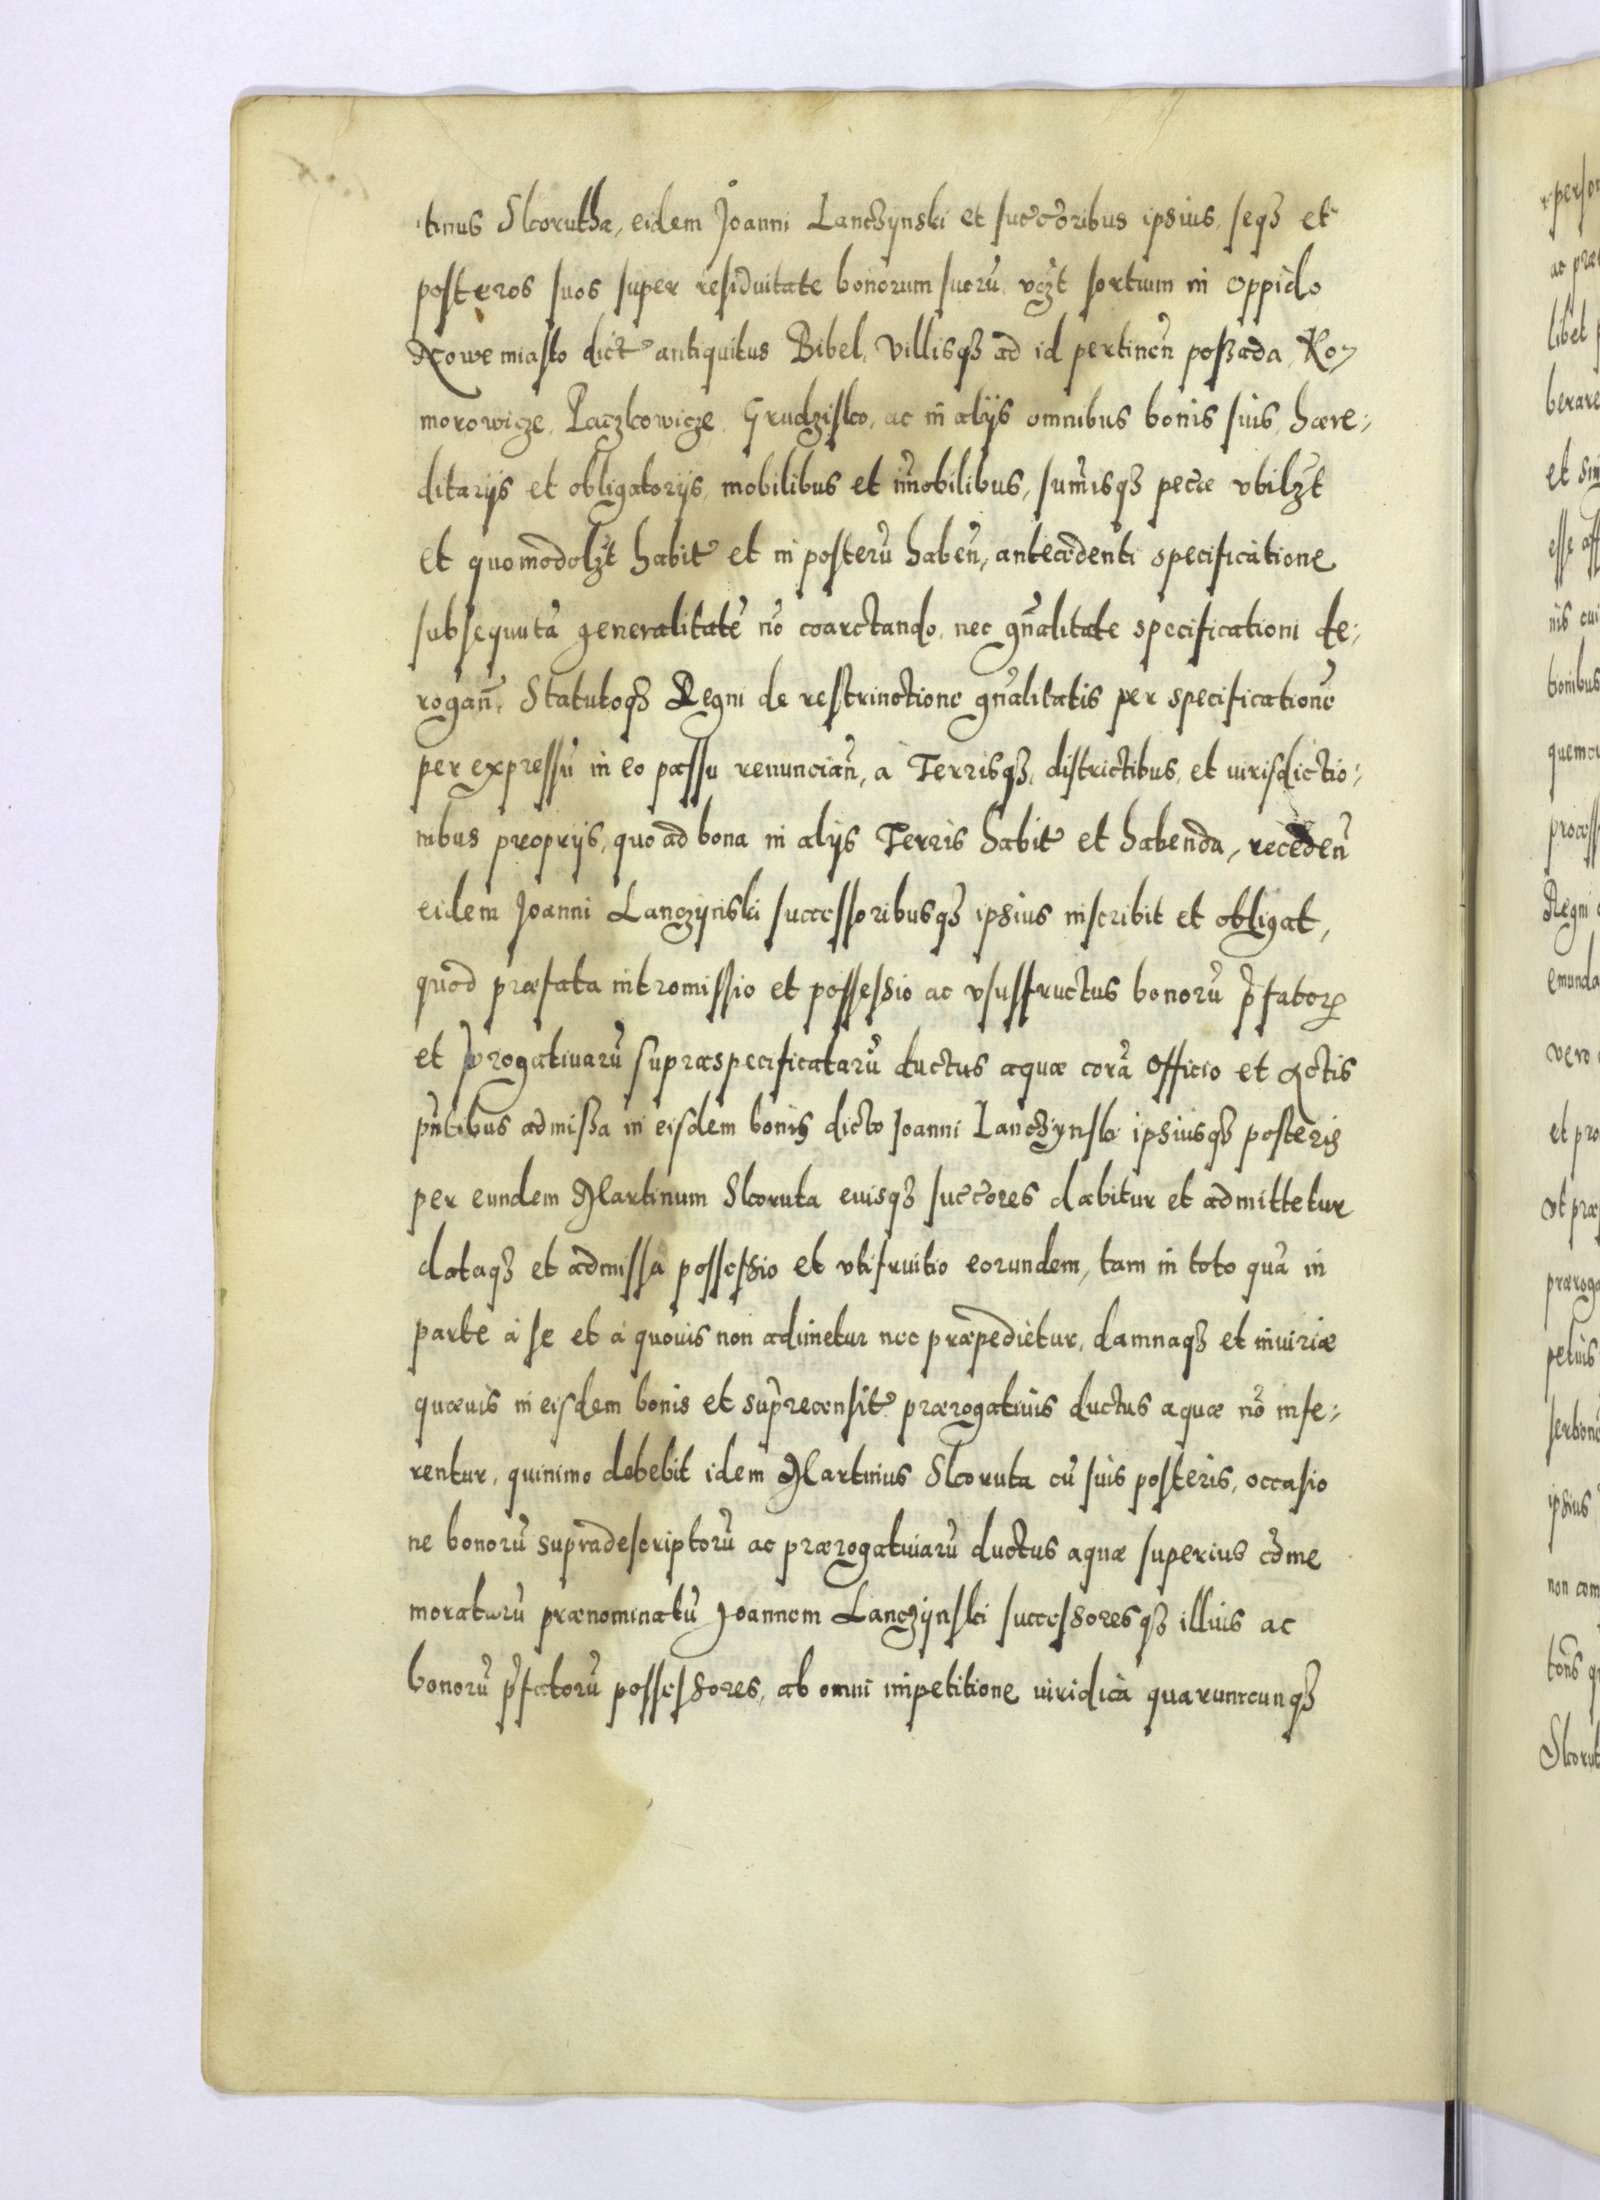 tinus Skorutha, eidem Joanni Lanczynski et succoribus ipsius, seqȝ et
posteros suos super residuitate bonorum suorū, vczt sortium in Oppido
Nowe miasto dict antiquitus Bibel, Villisqȝ ad id pertineñ poszada, Ko-
morowicze, Paczkowicze, Grudzisko, ac in alijs omnibus bonis suis, hære-
ditarijs et obligatorijs, mobilibus et im̄obilibus, sum̄isqȝ pecīæ vbilzt
et quomodolzt habit et in posterū habeñ, antecedenti specificatione
subsequutā generalitatē nō coarctando, nec gñalitate specificationi de-
rogañ, Statutoqȝ Regni de restrinctione gñalitatis per specificationē
per expressū in eo passu renunciañ, à Terrisqȝ, districtibus, et iurisdictio-
nibus proprijs, quo ad bona in alijs Terris habit et habenda, recedeñ
eidem Joanni Lanczynski successoribusqȝ ipsius inscribit et obligat,
quod præfata intromissio et possessio ac vsusfructus bonorū p̄fatorꝝ
et prærogatiuarū supraspecificatarū ductus aquæ corā Officio et Actis
pñtibus admissa in eisdem bonis dicto Joanni Lanczynski ipsiusqȝ posteris
per eundem Martinum Skoruta euisqȝ succores dabitur et admittetur
dataqȝ et admissa possessio et vtifruitio eorundem, tam in toto quā in
parte à se et à quouis non adimetur nec præpedietur, damnaqȝ et iniuriæ
quæuis in eisdem bonis et sup̄recensit prærogatiuis ductus aquæ nō infe-
rentur, quinimo debebit idem Martinus Skoruta cū suis posteris, occasio
ne bonorū supradescriptorū ac prærogatiuarū ductus aquæ superius cōme
moratarū prænominatū Joannem Lanczynski successoresqȝ illius ac
bonorū p̄fatorū possessores, ab omni impetitione iuridicā quarumcunqȝ